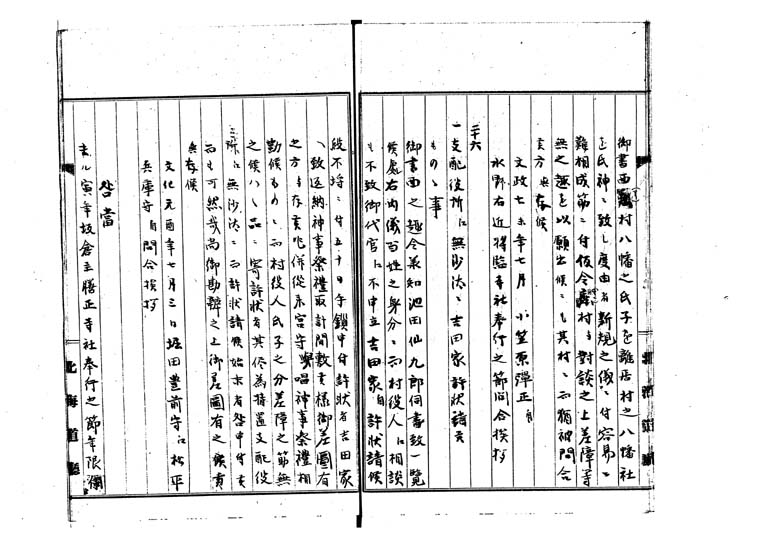 御書面村八幡之氏子を離居村之八幡社
を氏神ニ致し度由者新規之儀ニ付容易ニ
難相成筋ニ付仮令村与対談之上差障等
無之趣を以願出候ニも其村ニ而猶被問合
候方与存候
文政七未年七月 小笠原弾正
水野右近将監寺社奉行之節問合挨拶
二十六
一支配役所江無沙汰ニ吉田家許状請候
もの之事
御書面之趣令承知池田仙九郎伺書致一覧
候処右内儀百姓之身分ニ而村役人江相談
も不致御代官江不申立吉田家許状請候
段不埒ニ付五十日手鎖申付許状者吉田家
江致返納神事祭礼取計間敷旨様御差図有
之方与存候尤併従来宮守与唱神事祭礼相
勤候ものニ而村役人氏子之分差障之筋無
之候ハヽ品ニ寄許状者其侭為持置支配役
所江無沙汰ニ而許状請候始末者咎申付
而も可然哉尚御勘弁之上御差図有之候
与存候
文化元酉年七月三日堀田豊前守江松平
兵庫守問合挨拶
咎当
去ル寅年板倉主膳正寺社奉行之節年限
北海道庁
北海道庁